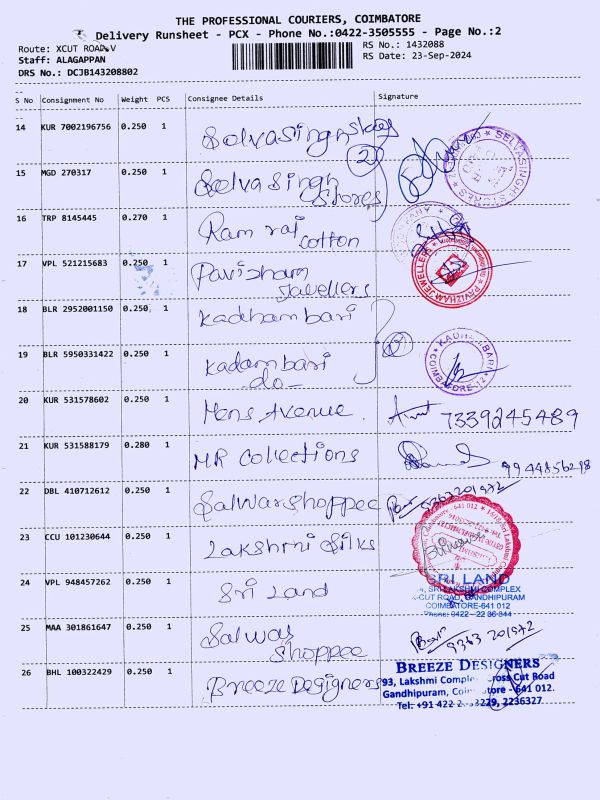 THE PROFESSIONAL COURIERS, COIMBATORE
Delivery Runsheet - PCX - Phone No.:0422-3505555 - Page No.:2
Route: XCUT ROAD V
RS No.: 1432088
Staff: ALAGAPPAN
RS Date: 23-Sep-2024
DRS No.: DCJB143208802
S No Consignment No Weight PCS Consignee Details Signature
14 KUR 7002196756 0.250 1 Selvasingh
15 MGD 270317 0.250 1 Selvasingh Stores
2
SELVASINGH STORES
16 TRP 8145445 0.270 1 Ram raj cotton
17 VPL 521215683 0.250 1 Pavizham Jewellers
PAVIZHAM JEWELLERS
18 BLR 2952001150 0.250 1 Kadhambari
19 BLR 5950331422 0.250 1 Kadambari
-do-
20 KUR 531578602 0.250 1 Mens Avenue 7339245489
21 KUR 531588179 0.280 1 MR Collections 9944856218
22 DBL 410712612 0.250 1 Salwar shoppee 9363201972
23 CCU 101230644 0.250 1 Lakshmi Silks
24 VPL 948457262 0.250 1 Sri Land
SRI LAND
SRI LAKSHMI COMPLEX
CUT ROAD, GANDHIPURAM
COIMBATORE-641 012
Phone: 0422
25 MAA 301861647 0.250 1 Salwar Shoppee 9363 201972
26 BHL 100322429 0.250 1 Breeze Designers
BREEZE DESIGNERS
93, Lakshmi Complex Cross Cut Road
Gandhipuram, Coimbatore - 641 012.
Tel: +91 422 2236327